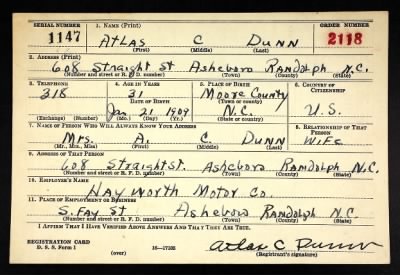 SERIAL NUMBER 1. NAME (Print) ORDER NUMBER
1147 ATLAS C DUNN 2118
(First) (Middle) (Last)
2. ADDRESS (Print)
608 Straight St Asheboro RANDOLPH N.C.
(Number and street or R. F. D. number) (Town) (County) (State)
3. TELEPHONE 4. AGE IN YEARS 5. PLACE OF BIRTH 6. COUNTRY OF CITIZENSHIP
318 31 Moore County
DATE OF BIRTH (Town or county)
Jan 21 1909 N.C. U.S.
(Exchange) (Number) (Mo.) (Day) (Yr.) (State or country)
7. NAME OF PERSON WHO WILL ALWAYS KNOW YOUR ADDRESS 8. RELATIONSHIP OF THAT PERSON
Mrs. A. C DUNN WIFE
(Mr., Mrs., Miss) (First) (Middle) (Last)
9. ADDRESS OF THAT PERSON
608 Straight St. Asheboro RANDOLPH N.C.
(Number and street or R. F. D. number) (Town) (County) (State)
10. EMPLOYER'S NAME
HAYWORTH Motor Co
11. PLACE OF EMPLOYMENT OR BUSINESS
S. FAY St Asheboro RANDOLPH N.C.
(Number and street or R. F. D. number) (Town) (County) (State)
I AFFIRM THAT I HAVE VERIFIED ABOVE ANSWERS AND THAT THEY ARE TRUE.
REGISTRATION CARD
D. S. S. Form 1 (over) 16—17105 Atlas C Dunn
(Registrant's signature)